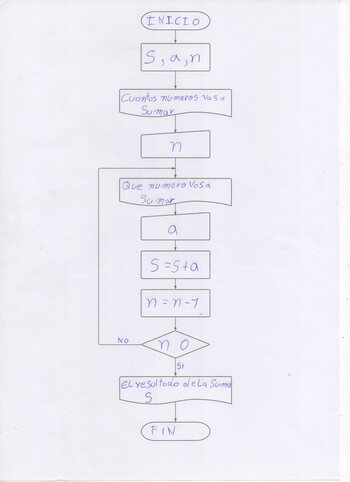 INICIO
S, a, n
Cuantos numeros vas a
Sumar
n
Que numero vas a
Sumar
a
S=S+a
n=n-1
n 0
No
SI
EL resultado de La Suma
S
FIN